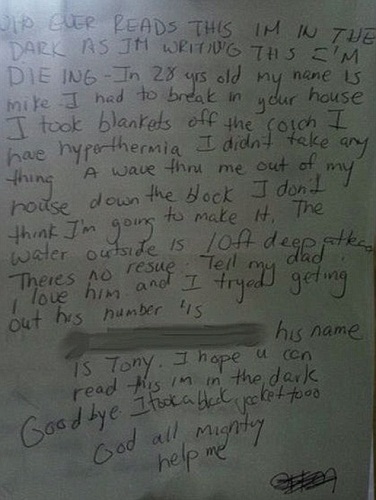 WHO EVER READS THIS IM IN THE
DARK AS IM WRITING THIS I'M
DIEING - In 28 yrs old my name is
mike I had to break in your house
I took blankets off the coich I
hae hyperthermia I didnt take any
thing A wave thru me out of my
house down the block I don't
think I'm going to make it. The
water outside is 10ft deep atleas
Theres no resue. Tell my dad
I love him and I tryed geting
out his number is
his name
is Tony. I hope u can
read this im in the dark
Good bye. I took a black jacket tooo
God all mighty
help me